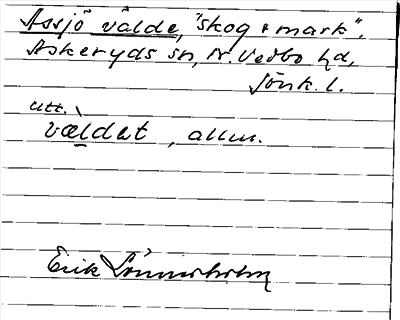 Assjö välde, "skog & mark".
Askeryds sn, N. Vedbo hd,
Jönk. l.
Utt.
vældet, allm.
Erik Lönnerholm